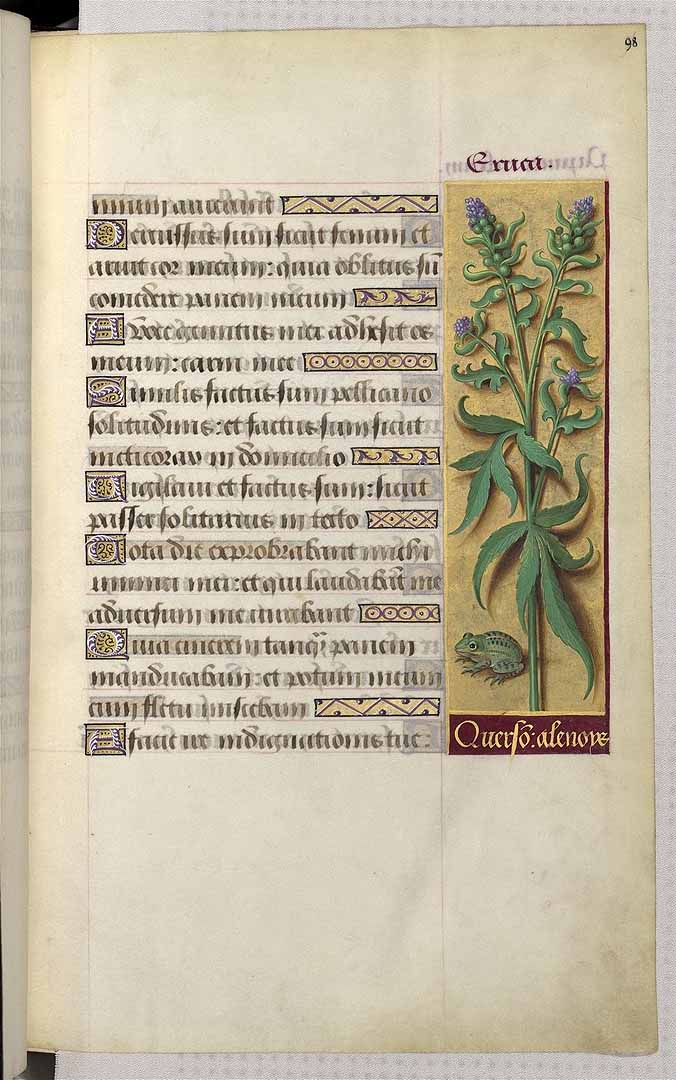 98
Eruca.
mium aruerunt
Percussus sum sicut fenum et
aruit cor meum: quia oblitus sũ
comedere panem meum
A voce gemitus mei adhesit os
meum: carni mee
Similis factus sum pellicano
solitudinis: et factus sum sicut
nicticorax in domicilio
Vigilavi et factus sum: sicut
passer solitarius in tecto
Tota die exprobrabant michi
inimici mei: et qui laudabãt me
adversum me iurabant
Quia cinerem tanq̃ panem
manducabam: et potum meum
cum fletu miscebam
A facie ire indignationis tue:
Quersõ: alenoys